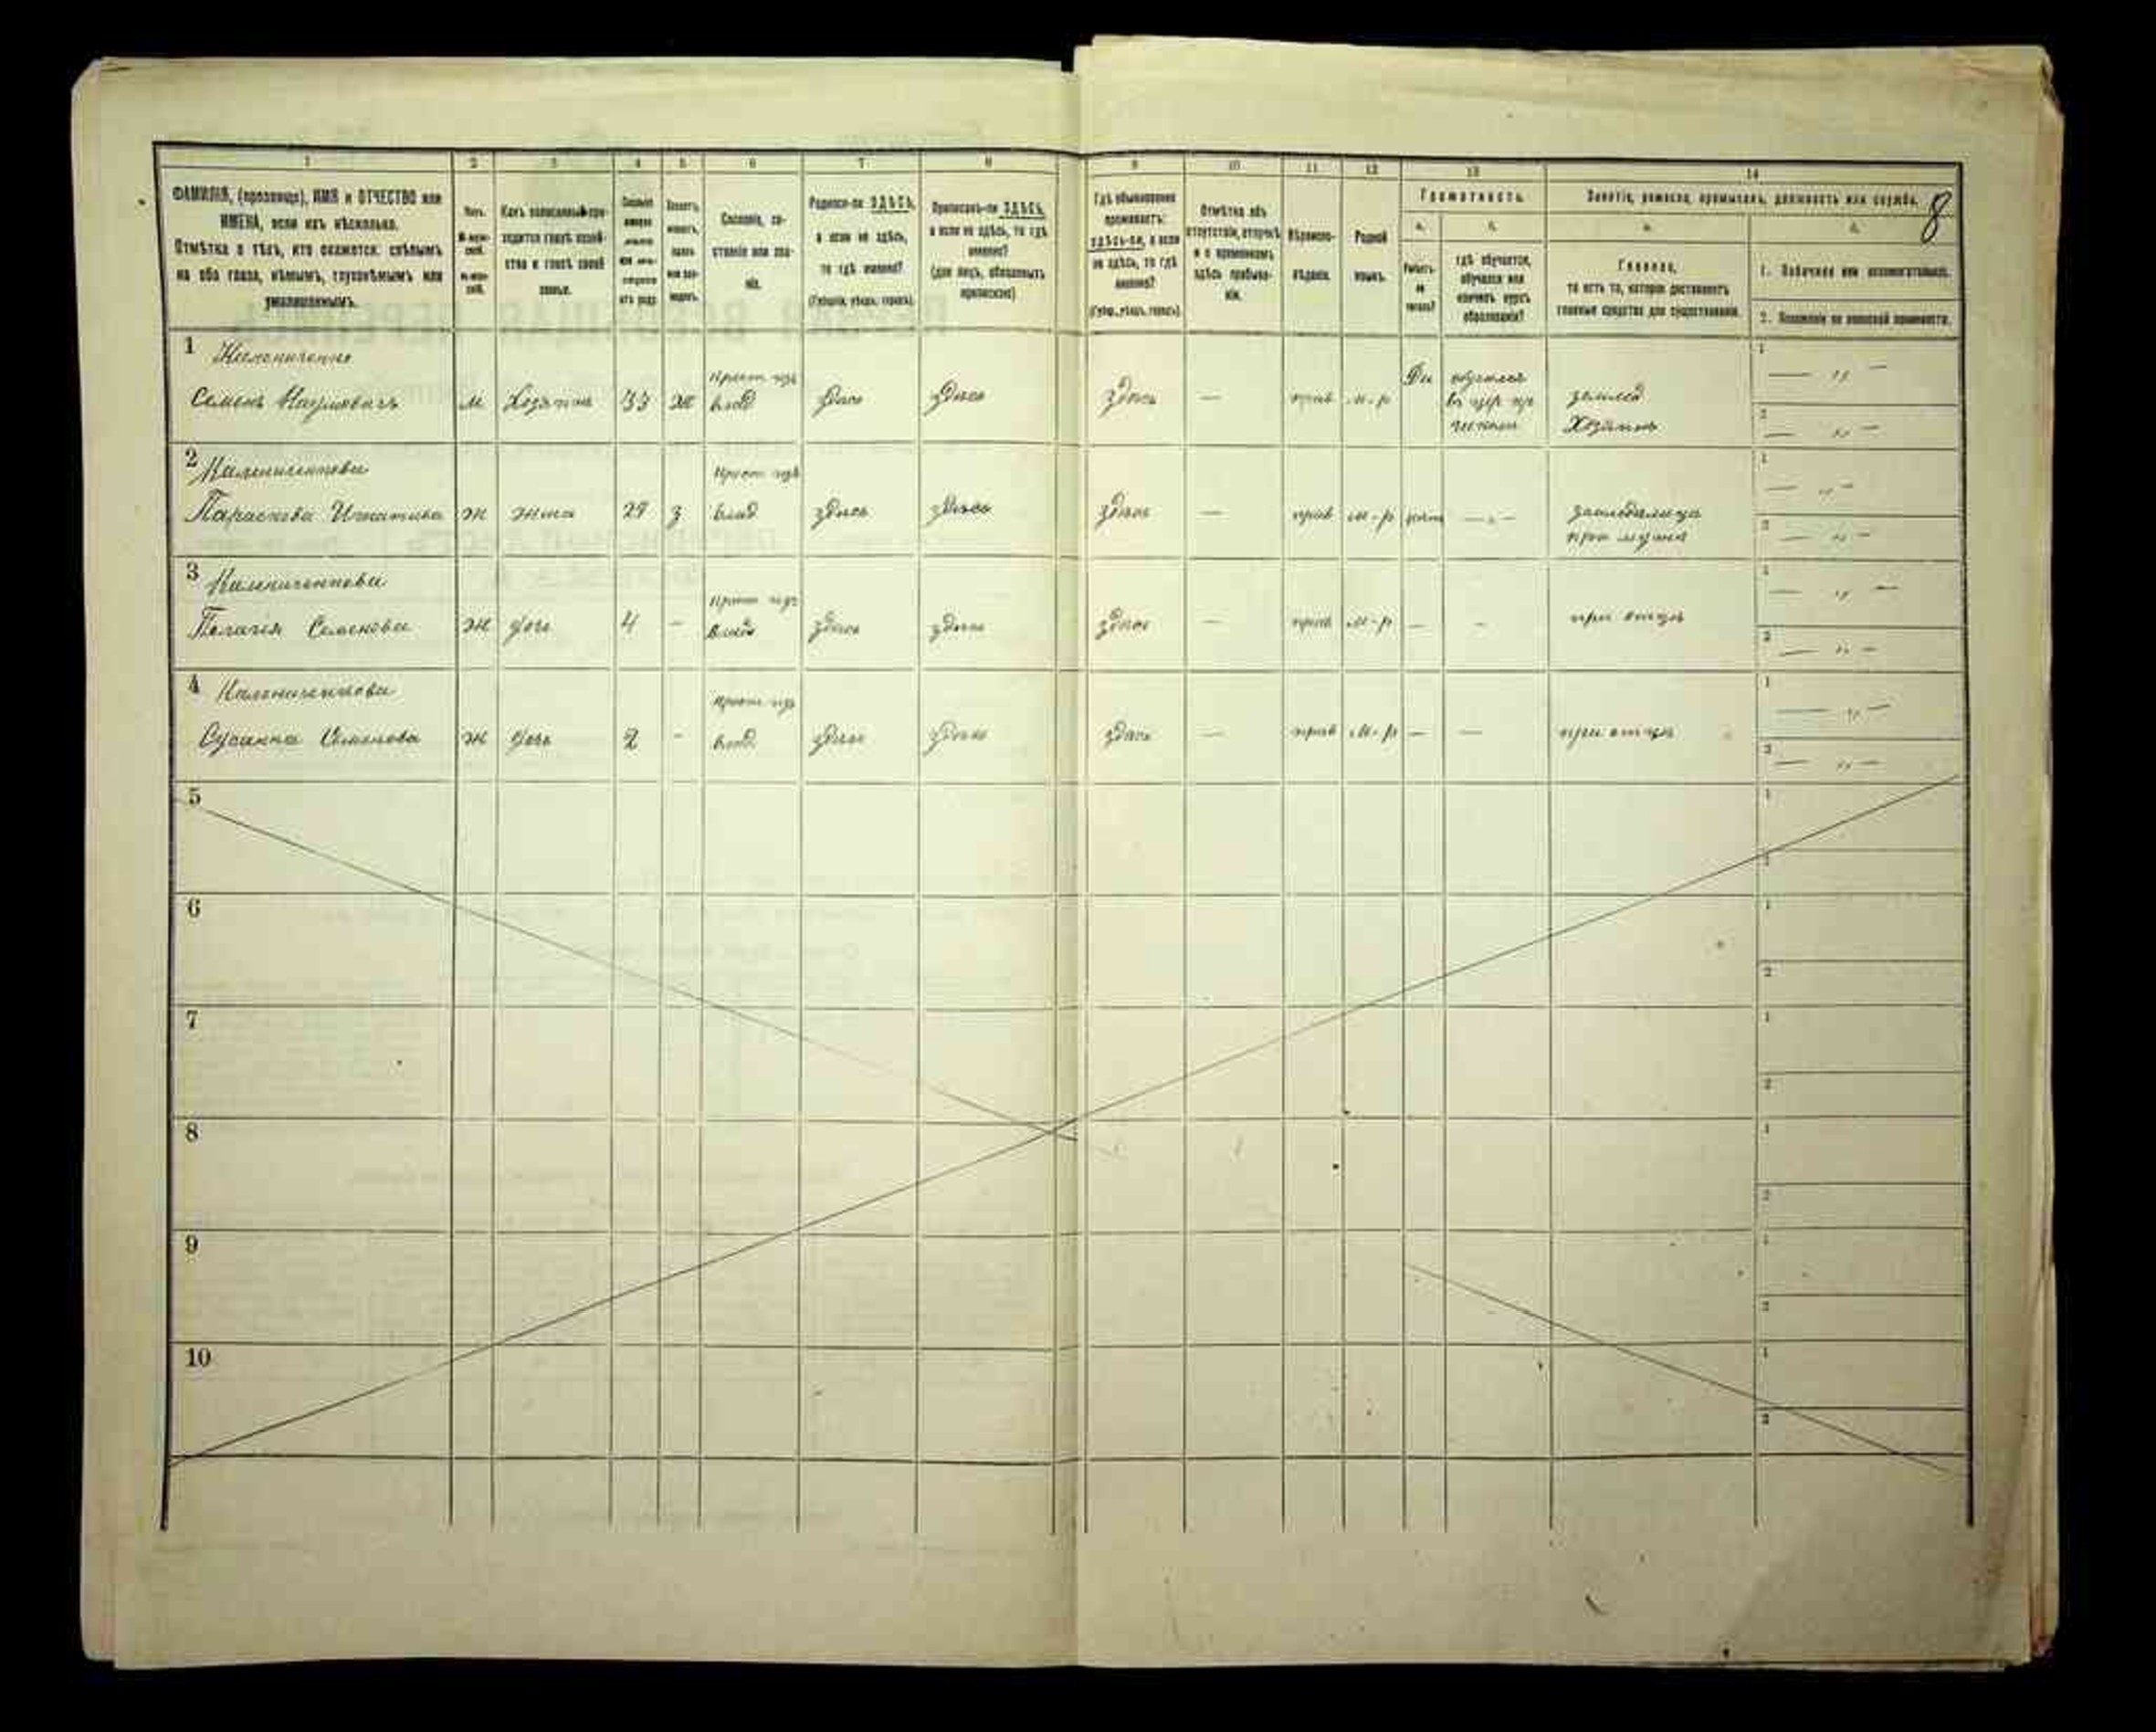 1 2 3 4 5 6 7 8 9 10 11 12 13 14
8
ФАМИЛІЯ, (прозвище), ИМЯ и ОТЧЕСТВО или
ИМЕНА, если ихъ нѣсколько.
Отмѣтка о тѣхъ, кто окажется: слѣпымъ
на оба глаза, нѣмымъ, глухонѣмымъ или
умалишеннымъ.
Полъ.
М-муж-
ской.
Ж-жен-
ской.
Какъ записанный при-
ходится главѣ хозяй-
ства и главѣ своей
семьи.
Сословіе, со-
стояніе или зва-
ніе.
Родился-ли ЗДѢСЬ,
а если не здѣсь,
то гдѣ именно?
(Губернія, уѣздъ, городъ).
Приписанъ-ли ЗДѢСЬ,
а если не здѣсь, то гдѣ
именно?
(для лицъ, обязанныхъ
припискою)
Гдѣ обыкновенно
проживаетъ:
здѣсь-ли, а если
не здѣсь, то гдѣ
именно?
(Губер., уѣздъ, городъ).
Отмѣтка объ
отсутствіи, отлучкѣ
и о временномъ
здѣсь пребыва-
ніи.
Вѣроиспо-
вѣданіе.
Родной
языкъ.
Грамотность.
а.
Умѣетъ-
ли
читать?
б.
гдѣ обучается,
обучался или
кончилъ курсъ
образованія?
Занятіе, ремесло, промыселъ, должность или служба.
а.
Главное,
то есть то, которое доставляетъ
главныя средства для существованія.
б.
1. Побочное или вспомогательное.
2. Положеніе по воинской повинности.
1
Семенъ Наумовичъ м Хозяинъ 33 ж Крест. изъ влад здѣсь здѣсь здѣсь — прав м-р Да обучался въ школѣ землед Хозяинъ
2 Калениченкова
Параскева Игнатьева ж жена 29 з Крест изъ влад здѣсь здѣсь здѣсь — прав м-р нѣтъ — при мужѣ
3 Калениченкова
Пелагея Семенова ж дочь 4 - Крест изъ влад здѣсь здѣсь здѣсь — прав м-р — - при отцѣ
4 Калениченкова
Сусанна Семенова ж дочь 2 - Крест изъ влад здѣсь здѣсь здѣсь — прав м-р — — при отцѣ
5
6
7
8
9
10